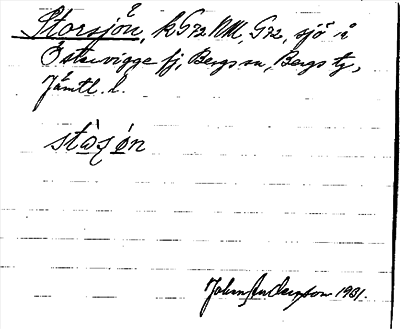 Storsjön, k G72 NM, G72, sjö i
Östervigge fj, Bergs sn, Bergs tg,
Jämtl. l.
stòʂón
John Anderzon 1931.